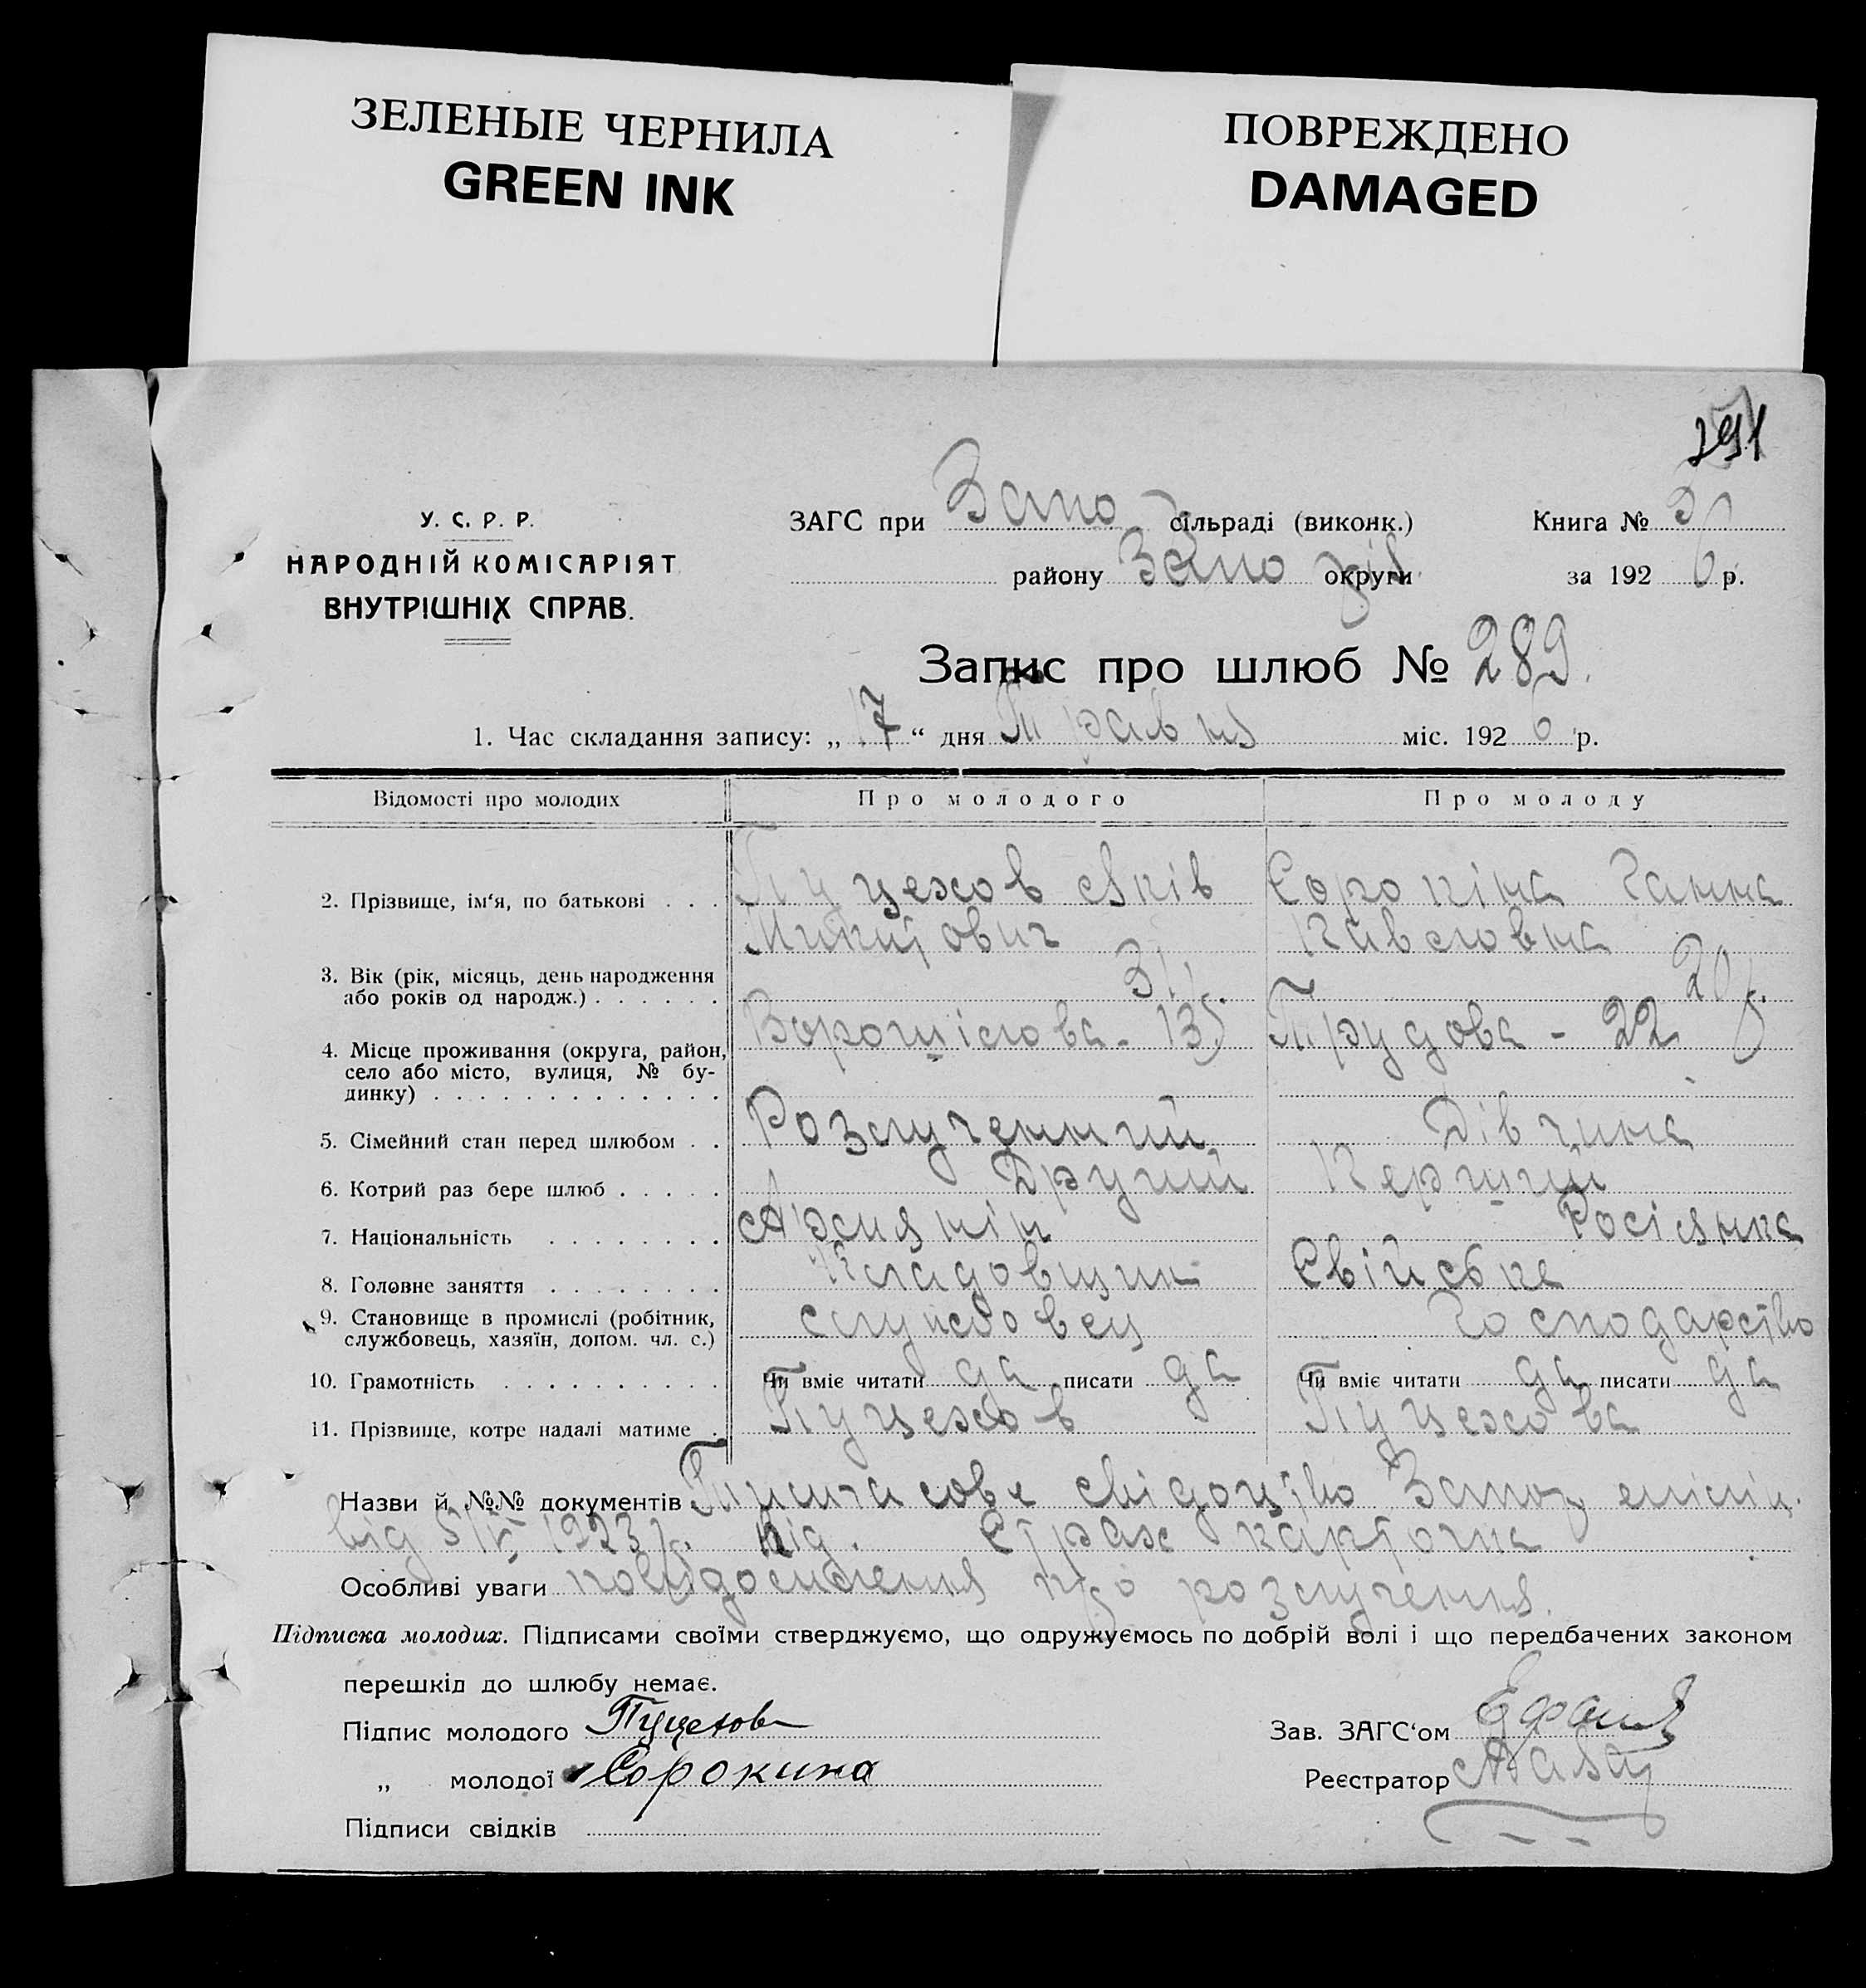 ЗЕЛЕНЫЕ ЧЕРНИЛА
GREEN INK
ПОВРЕЖДЕНО
DAMAGED
291
У. С. Р. Р.
НАРОДНІЙ КОМІСАРІЯТ
ВНУТРІШНІХ СПРАВ.
ЗАГС при Запо сільраді (виконк.)
Книга №
району Запо округи
за 192 6 р.
Запис про шлюб № 289.
1. Час складання запису: „ 17 “ дня Травня міс. 192 6 р.
Відомості про молодих Про молодого Про молоду
2. Прізвище, ім'я, по батькові . . . Яків Сорокіна Ганна
Павловна
3. Вік (рік, місяць, день народження
або років од народж.) . . . . . . 20 р.
4. Місце проживання (округа, район, Ворошілова - 135 Трудова - 22
село або місто, вулиця, № бу-
динку) . . . . . . . . . . . . .
5. Сімейний стан перед шлюбом . . Розлученний Дівчина
6. Котрий раз бере шлюб . . . . . Другий Перший
7. Національність . . . . . . . . Армянін Росіянка
8. Головне заняття . . . . . . . . Кладовщик Свійське
9. Становище в промислі (робітник, службовец Господарство
службовець, хазяїн, допом. чл. с.)
10. Грамотність . . . . . . . . . . Чи вміє читати да писати да Чи вміє читати да писати да
11. Прізвище, котре надалі матиме .
Назви й №№ документів Тимчасове свідоцтво міліц.
від 1923 р. від. Страх карточка
Особливі уваги повідомлення про розлучення.
Підписка молодих. Підписами своїми стверджуємо, що одружуємось по добрій волі і що передбачених законом
перешкід до шлюбу немає.
Підпис молодого
Зав. ЗАГС'ом
„ молодої Сорокина
Реєстратор
Підписи свідків